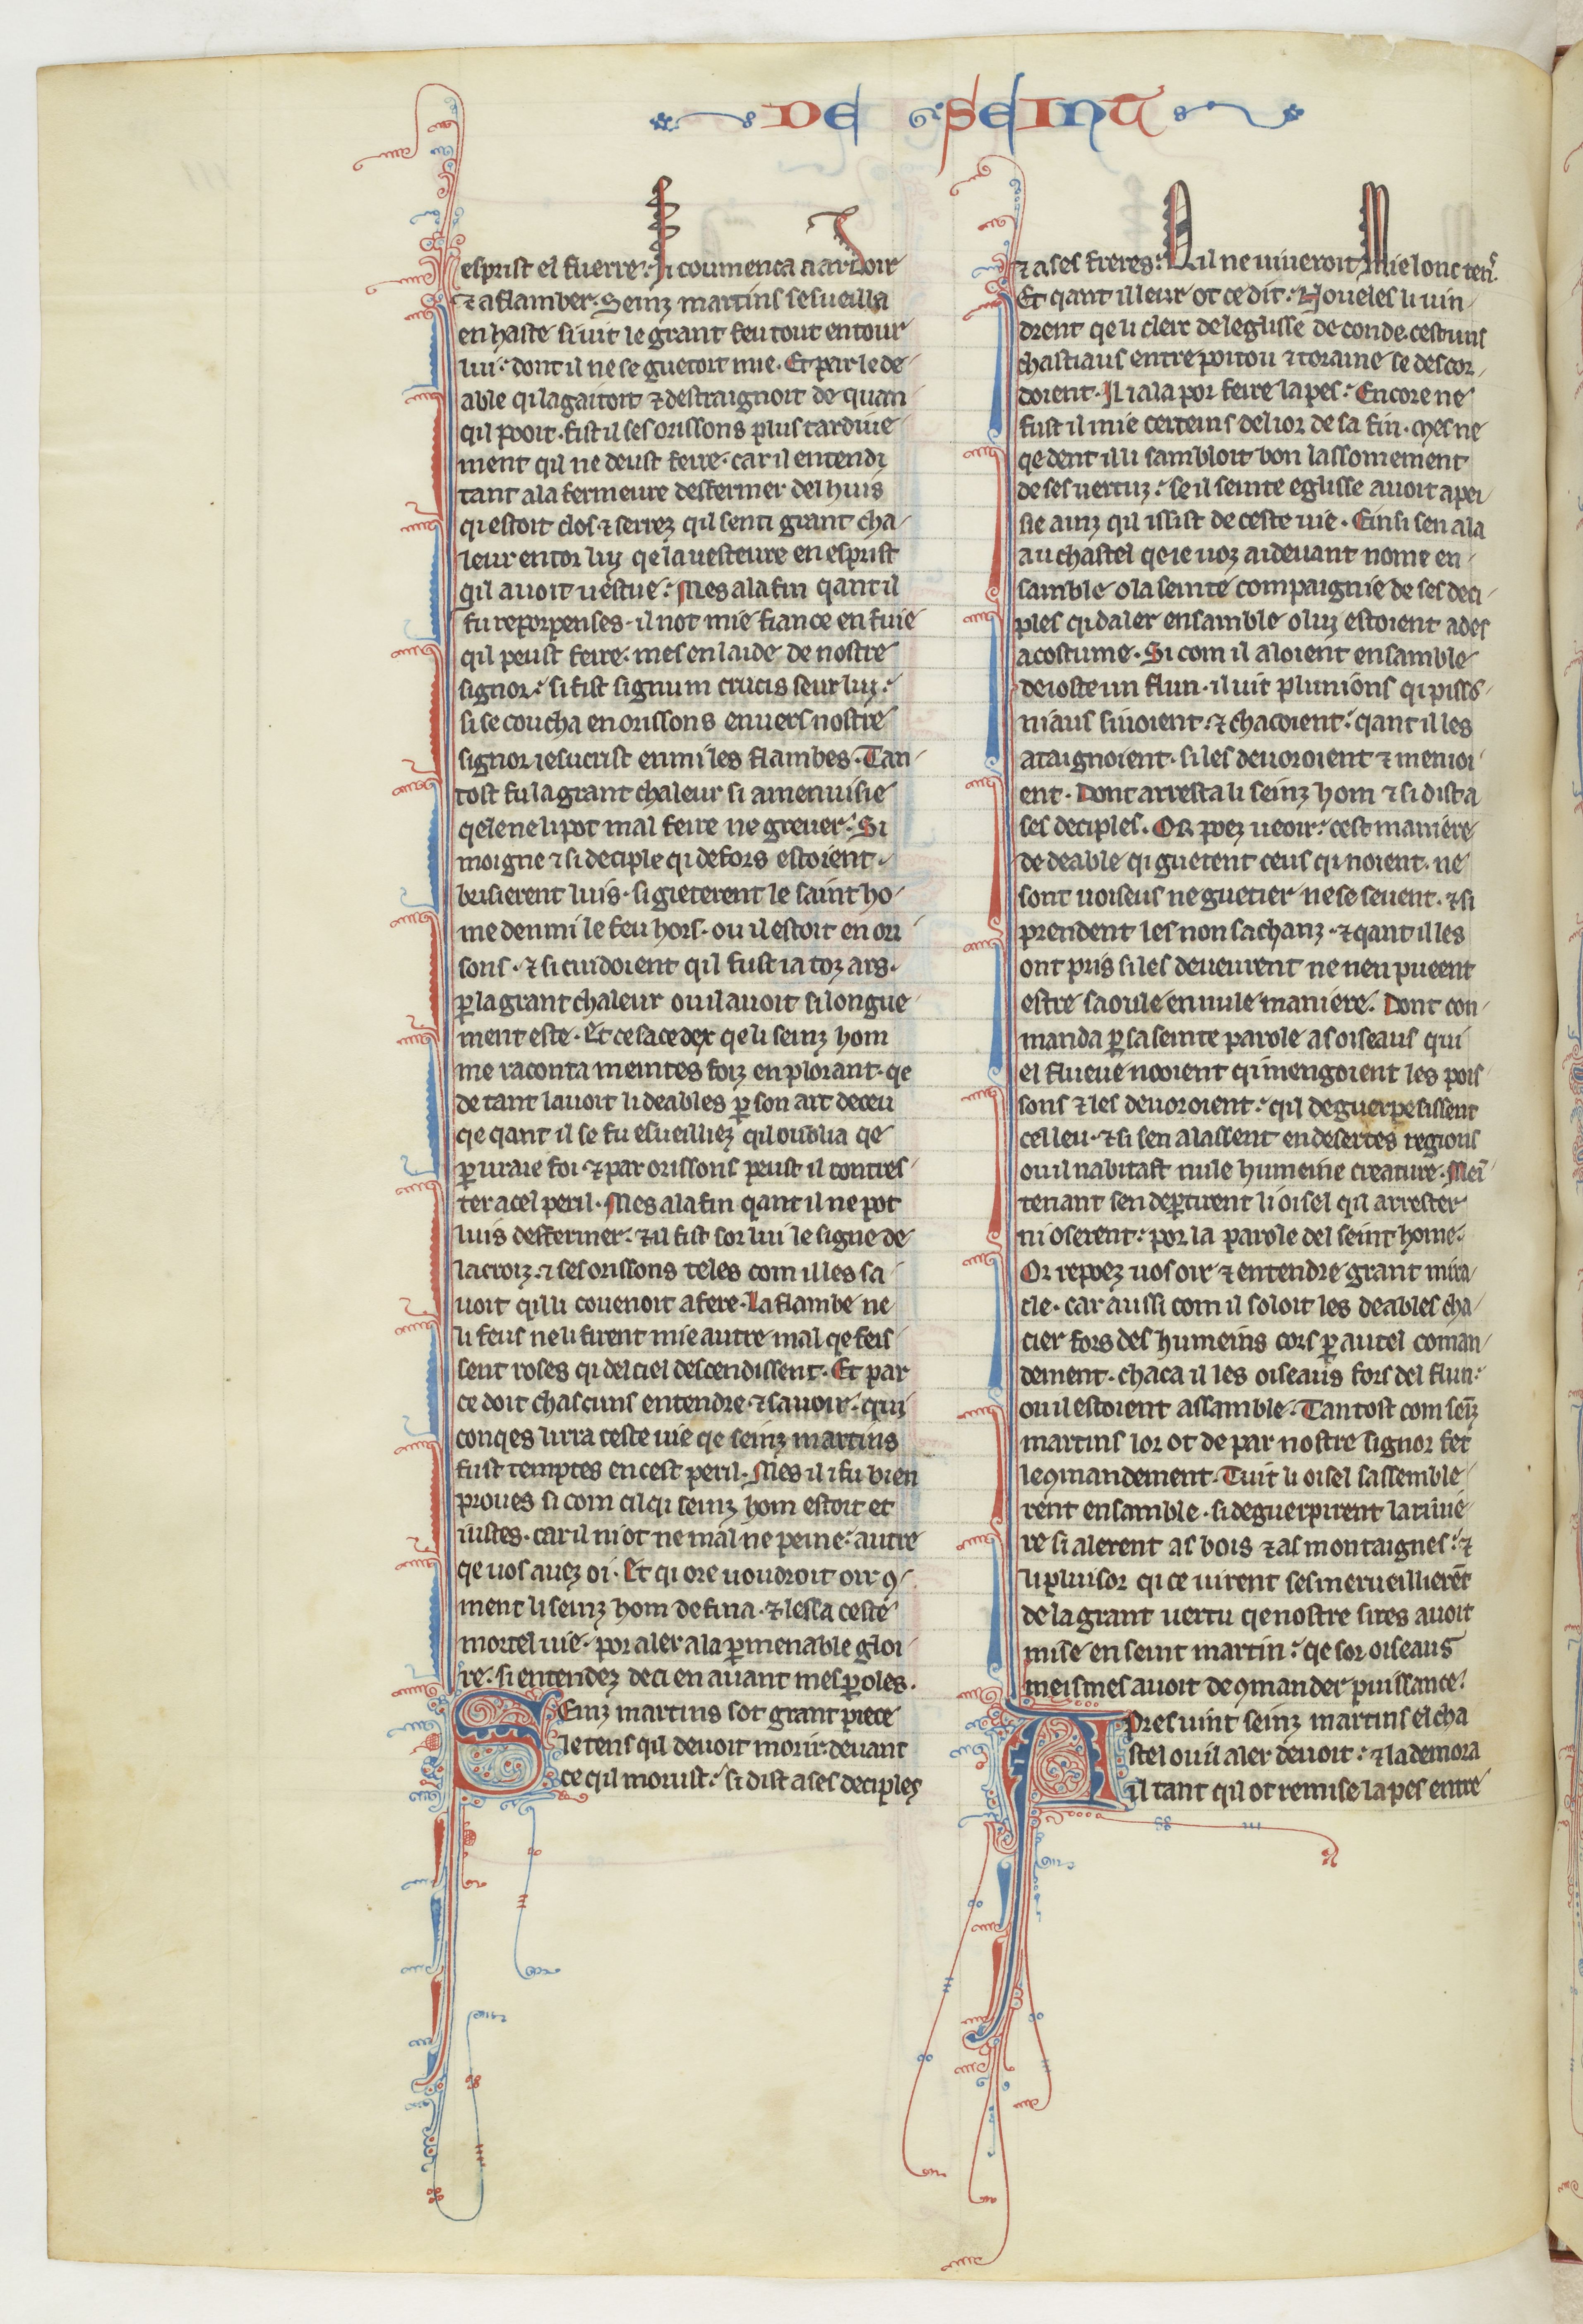 DE SEINT
esprist el fuerre. Si coumenca a ardoir
⁊ a flamber. Seinz martins sesueilla
en haste si uit le grant feu tout entour
lui. dont il ne se guetoit mie. Et par le de
able qi lagaitoit ⁊ destraignoit de quan
qil pooit. fist il ses orissons plus tardiue
ment qil ne deust feire. car il entendi
tant a la fermeure desfermer del huis
qi estoit clos ⁊ serrez qil senti grant cha
leur entor luy qe la uesteure en esprist
qil auoit uestue. Mes a la fin qant il
fu reporpenses. il not mie fiance en fuie
qil peust feire. mes en laide de nostre
signor. si fist signum crucis seur luy.
si se coucha en orissons enuers nostre
signor iesucrist enmi les flambes. Tan
tost fu la grant chaleur si amenuisie
qele ne li pot mal feire ne greuer. Si
moigne ⁊ si deciple qi defors estoient.
brisierent luis. si gieterent le saint ho
me denmi le feu hors. ou il estoit en ori
sons. ⁊ si cuidoient qil fust ia toz ars.
ꝑ la grant chaleur ou il auoit si longue
ment este. Et ce sace dex qe li seinz hom
me raconta meintes foiz en plorant. qe
de tant lauoit li deables ꝑ son art deceu
qe qant il se fu esueilliez qil oublia qe
ꝑ uraie foi. ⁊ par orissons peust il contres
ter a cel peril. Mes a la fin qant il ne pot
luis desfermer. ⁊ il fist sor lui le signe de
la croiz. ⁊ ses orissons teles com il les sa
uoit qil li couenoit a fere. La flambe ne
li feus ne li firent mie autre mal qe feis
sent roses qi del ciel descendissent. Et par
ce doit chascuns entendre ⁊ sauoir. qui
conqes lirra ceste uie qe seinz martins
fust temptes en cest peril. Mes il i fu bien
proues si com cil qi seinz hom estoit et
iustes. car il ni ot ne mal ne peine. autre
qe uos auez oi. Et qi ore uoudroit oir ꝯ
ment li seinz hom defina. ⁊ lessa ceste
mortel uie. por aler a la ꝑmenable gloi
re. si entendez deci en auant mes ꝑoles.
Seinz martins sot grant piece
le tens qil deuoit morir. deuant
ce qil morust. si dist a ses deciples
⁊ a ses freres. Qil ne uiueroit mie lonc tens.
Et qant il leur ot ce dit. Noueles li uin
drent qe li clerc de leglisse de conde. cest uns
chastiaus entre poitou ⁊ toraine se descor
doient. Il i ala por feire la pes. Encore ne
fust il mie certeins del ior de sa fin. Mes ne
qedent il li sambloit bon lassomement
de ses uertuz. se il seinte eglisse auoit apei
sie ainz qil issist de ceste uie. Einsi sen ala
au chastel qe ie uoz ai deuant nome en
samble o la seinte compaignie de ses deci
ples qi daler ensamble o luy estoient ades
acostume. Si com il aloient ensamble
de ioste un flun. il uit plunions qi poiss
niaus siuoient. ⁊ chacoient. qant il les
ataignoient. si les deuoroient ⁊ menioi
ent. Dont arresta li seinz hom ⁊ si dist a
ses deciples. Or poez ueoir. cest maniere
de deable qi guetent ceus qi noient. ne
sont uoiseus ne guetier ne se seuent. ⁊ si
prendent les non sachanz. ⁊ qant il les
ont pris si les deueurent ne nen pueent
estre saoule en nule maniere. Dont con
manda ꝑ sa seinte parole as oiseaus qui
el flueue nooient qi mengoient les pois
sons ⁊ les deuoroient. qil deguerpesissent
cel leu. ⁊ si sen alassent en desertes regions
ou il nabitast nule humeine creature. Mein
tenant sen deꝑtirent li oisel qil arrester
ni oserent. por la parole del seint home.
Or repoez uos oir ⁊ entendre grant mira
cle. car aussi com il soloit les deables cha
cier fors des humeins cors ꝑ autel coman
dement. chaca il les oiseaus fors del flun.
ou il estoient assamble. Tantost com seinz
martins lor ot de par nostre signor fet
le ꝯmandement. Tuit li oisel sassemble
rent ensamble. si deguerpirent la riuie
re si alerent as bois ⁊ as montaignes. ⁊
li pluisor qi ce uirent sesmerueillierent
de la grant uertu qe nostre sires auoit
mise en seint martin. qe sor oiseaus
meismes auoit de ꝯmander puissance.
Apres uint seinz martins el cha
stel ou il aler deuoit. ⁊ la demora
il tant qil ot remise la pes entre